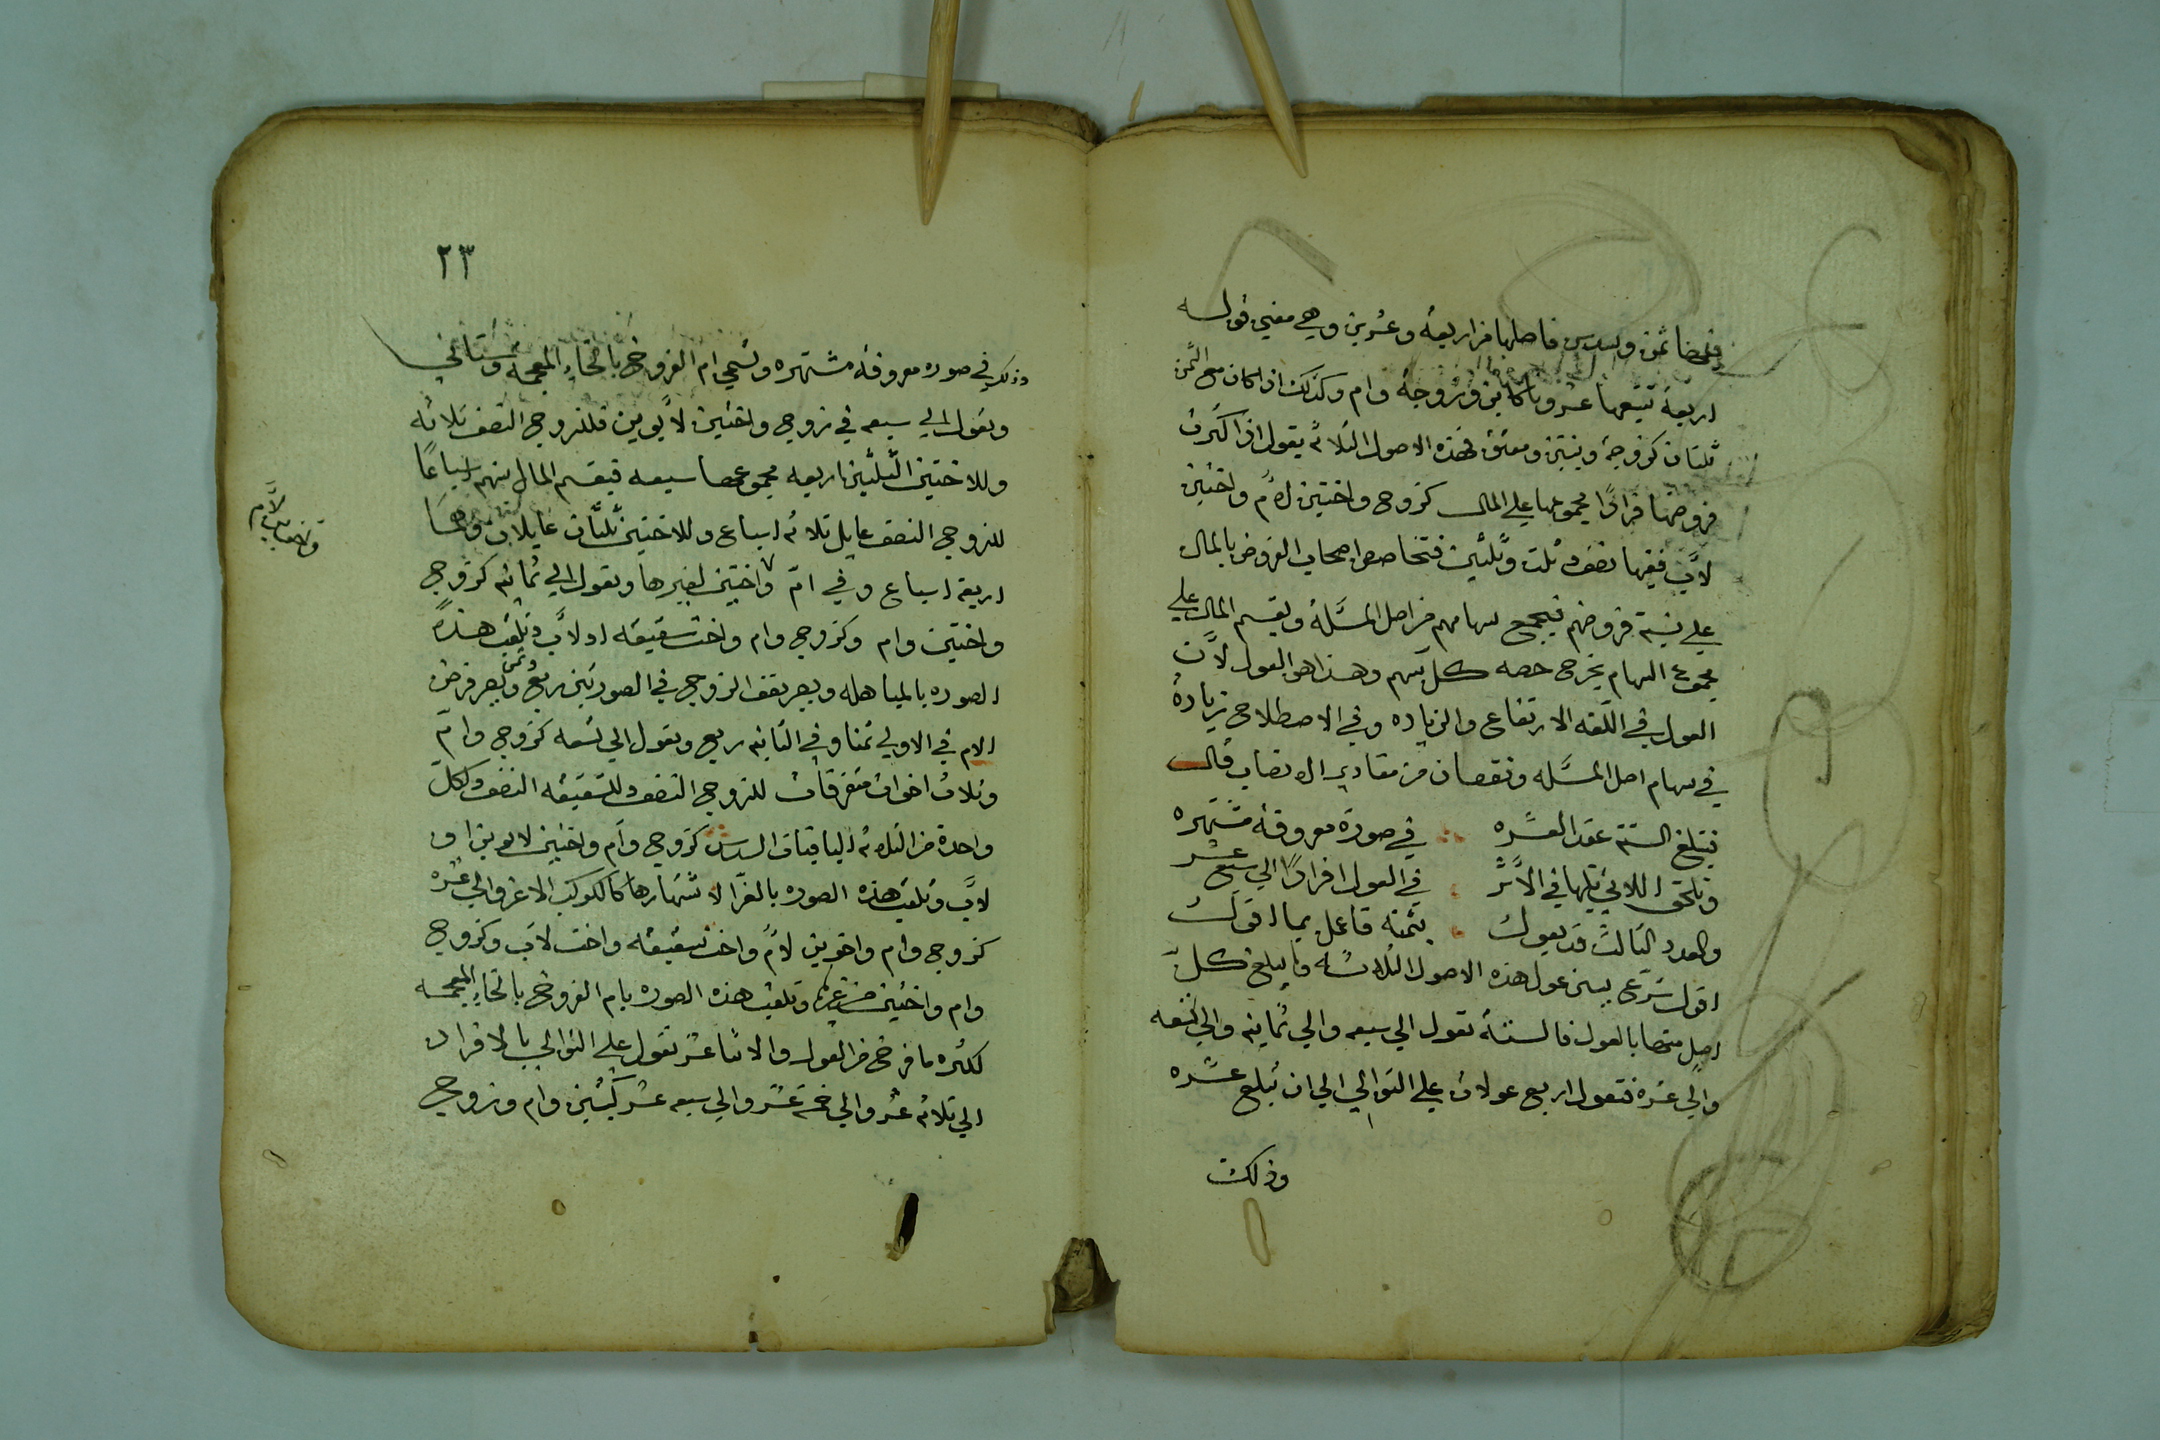 فرضا ثمن وسدس فاصلها من اربعة وعشرين وهي معني قوله
اربعة تتبعها عشرونا كابن وزوجة وام وكذلك اذا كان مع الثمن
ثلثان كزوجة وبنتين ومعتق فهذه الاصول الثلاثه يقول اذا كثرت
فروضها فزادا مجموعها علي المال كزوج واختين لام واختين
لاب ففيها نصف وثلث وثلثين فتخاصص اصحاب الفروض بالمال
علي نسبة فروضهم فيجمع سهامهم من اصل المسئلة ويقسم المال علي
مجموع السهام يخرج حصه كل سهم وهذا هو العول لان
العول في اللغه الارتفاع والزياده وفي الاصطلاح زيادة
في سهام اصل المسئله ونقصان من مقادير الانصاب قال
فتبلغ الستة عقد العشره في صورة معروفة مشتهره
وتلحق اللاتي تليها في الاثر في العول افرادا الي سبع عشر
والعدد الثالث قد يعول بثمنه فاعمل بما اقول
اقول شرع يبين عول هذه الاصول الثلاثه وما يبلغ كل
اصل منها بالعول فالستة تعول الي سبعه والي ثمانيه والي تسعه
والي عشره فتعول اربع عولات علي التوالي الي ان تبلغ عشره
وذلك
٢٣
وذلك في صوره معروفة مشتهره وتسمي ام الفروخ بالخاء المعجمه وستاتي
وتعول الي سبعه في زوج واختين لابوين فللزوج النصف ثلاثه
وللاختين الثلثين اربعه مجموعها سبعه فيقسم المال بينهم اسباعا
للزوج النصف عايل ثلاثه اسباع وللاختين ثلثان عايلان وهما
اربعة اسباع وفي ام واختين لغيرها وتعول الي ثمانيه كزوج
واختين وام وكزوج وام واخت شقيقه او لاب وتلقب هذه
الصوره بالمباهله ويصير نصف الزوج في الصورتين ربع وثمن ويصير فرض
الام في الاولي ثمنا وفي الثانيه ربع وتعول الي تسعه كزوج وام
وثلاث اخوات متفرقات للزوج النصف وللشقيقه النصف ولكل
واحدة من الثلاثه الباقيات السدس كزوج وام واختين لابوين او
لاب وتلقب هذه الصوره بالغرا لاشتهارها كالكوكب الاغر والي عشره
كزوج وام واخوين لام واخت شقيقه واخت لاب وكزوج
وام واختين من غيرها وتلقب هذه الصوره بام الفروخ بالخاء المعجمه
لكثره ما فرخ من العول والاثنا عشر تعول علي التوالي بالافراد
الي ثلاثه عشر والي خمسة عشر والي سبعه عشر كبنتين وام وزوج